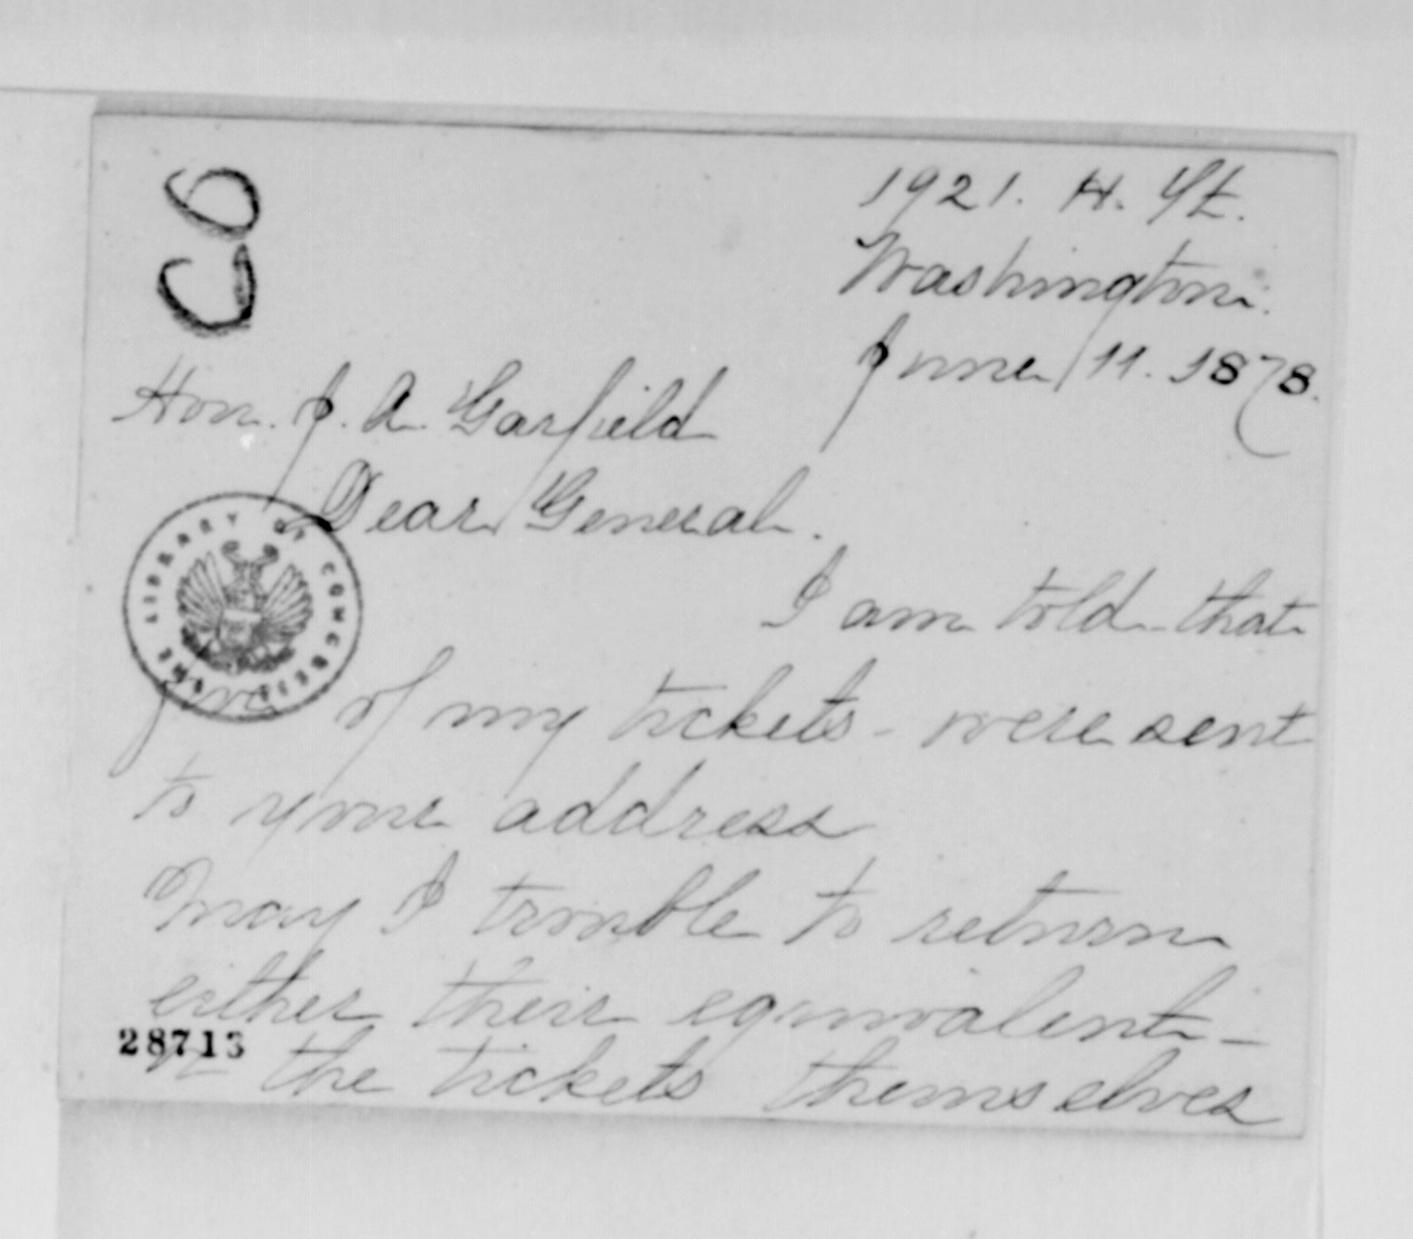 C6
1921. H. St.
Washington.
June 11. 1878.
Hon. J. A. Garfield
Dear General.
I am told that
five of my tickets - were sent
to your address
May I trouble to return
either their equivalent -
or the tickets themselves
LIBRARY OF CONGRESS
28713